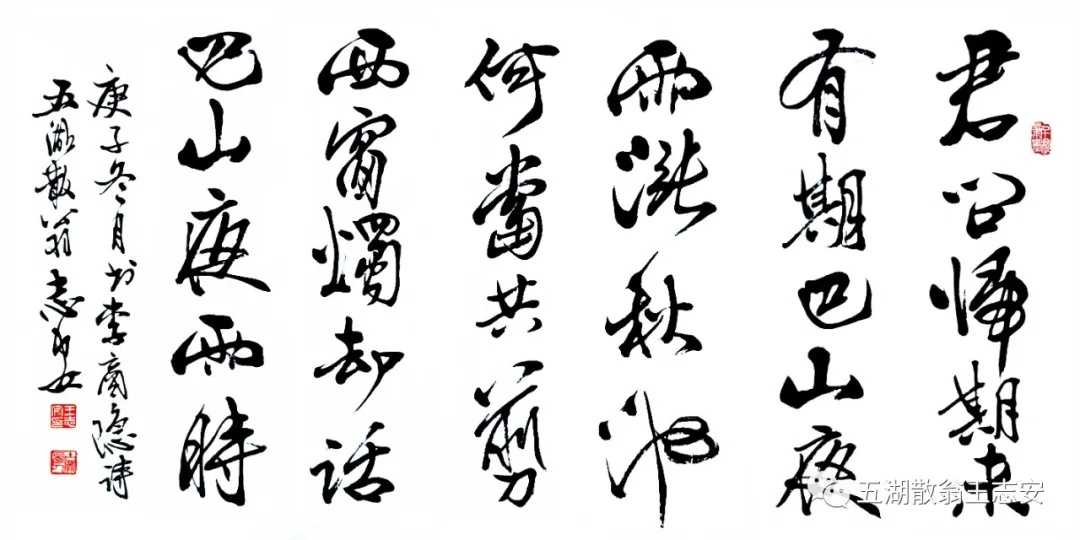 君问歸期未
有期巴山夜
雨漲秋池
何當共剪
西窗燭却话
巴山夜雨時
庚子冬月书李商隐诗
五湖散翁志安
五湖散翁王志安